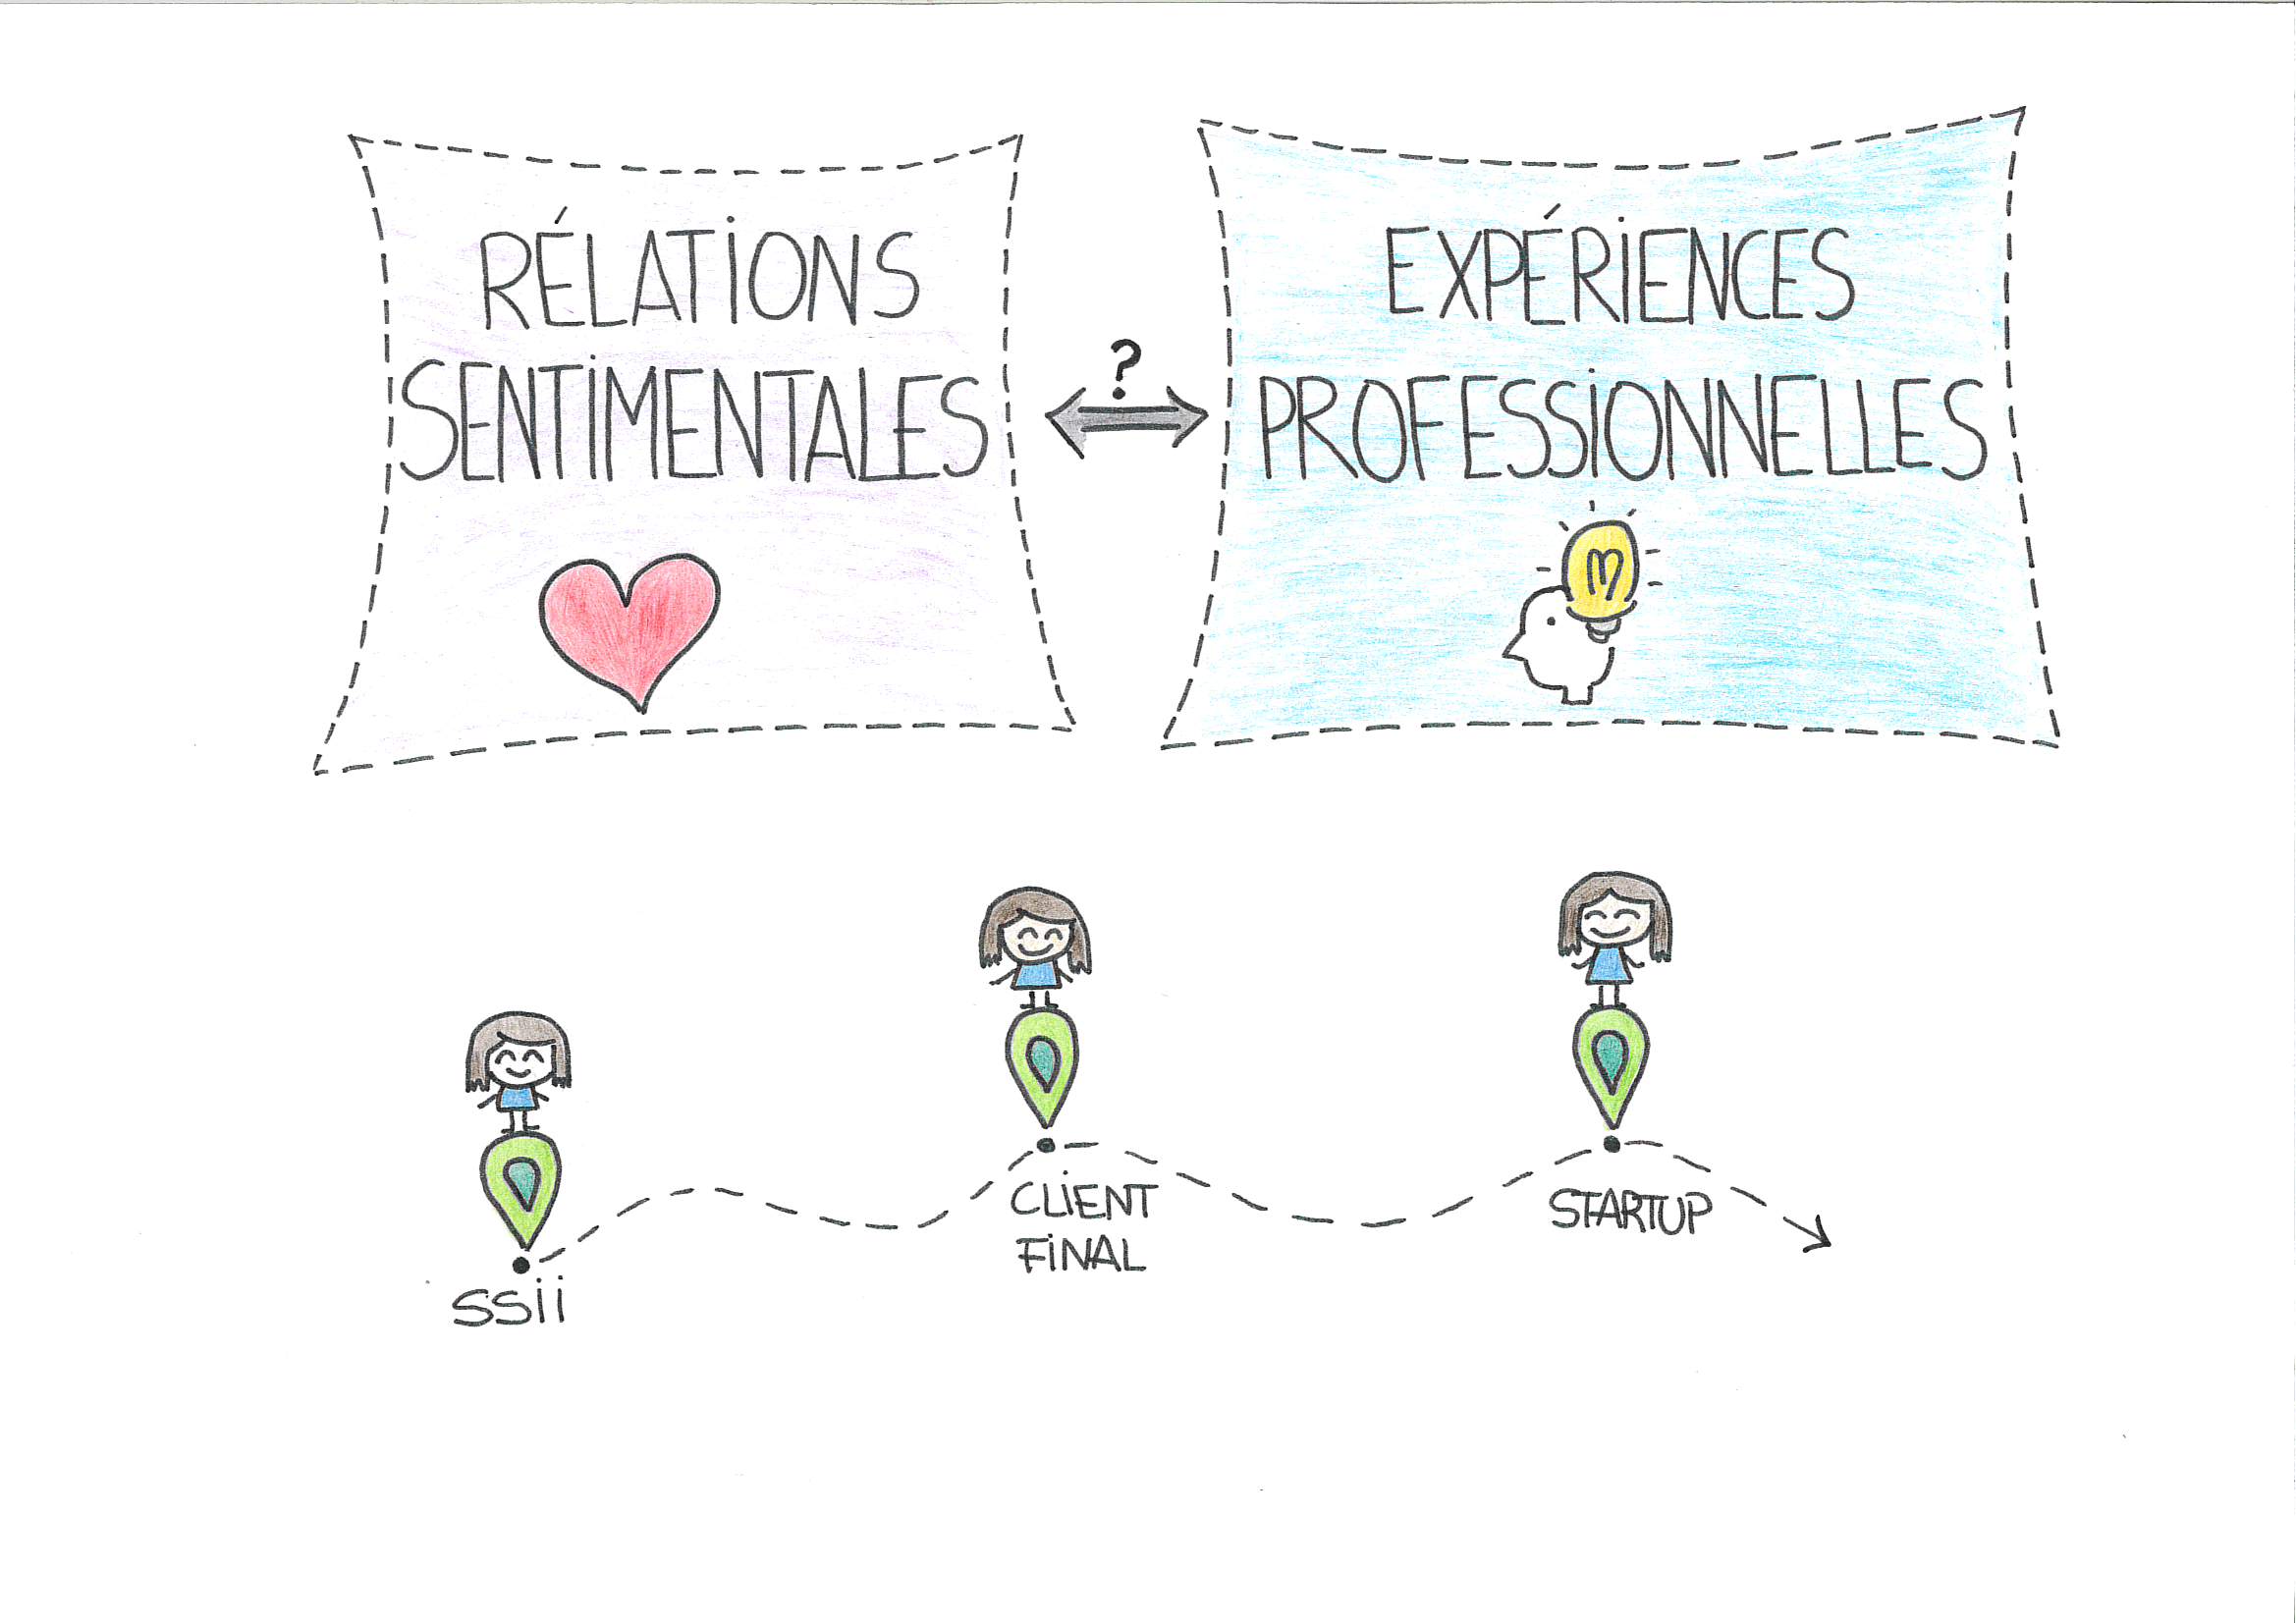 RÉLATIONS
SENTIMENTALES
?
EXPÉRIENCES
PROFESSIONNELLES
SSII
CLIENT
FINAL
STARTUP